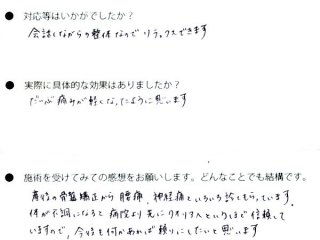 ● 対応等はいかがでしたか?
会話しながらの整体なのでリラックスできます
● 実際に具体的な効果はありましたか?
だいぶ痛みが軽くなったように思います
● 施術を受けてみての感想をお願いします。どんなことでも結構です。
産後の骨盤矯正から腰痛、神経痛といろいろ診てもらっています。
体が不調になると病院より先にクオリス人というほど信頼して
いますので、今後も何かあれば頼りにしたいと思います